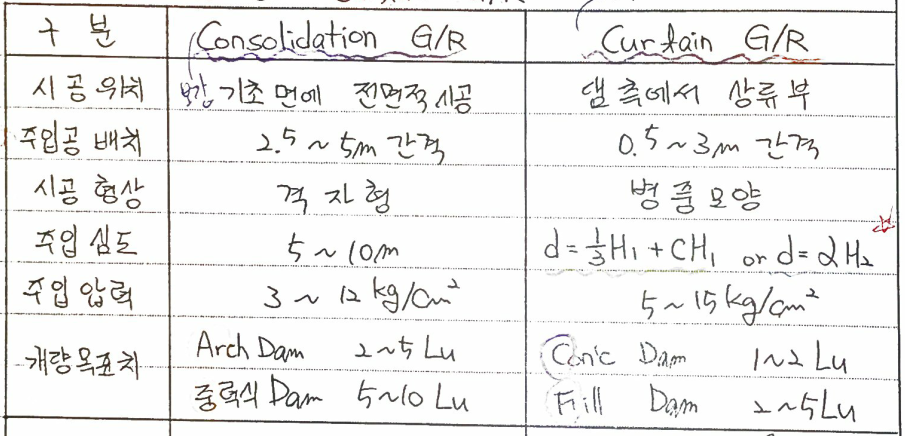 구 분 Consolidation G/R Curtain G/R
시공위치 기초면에 전면적시공 댐 축에서 상류부
주입공 배치 2.5 ~ 5m 간격 0.5 ~ 3m 간격
시공 형상 격자형 병풍모양
주입 심도 5 ~ 10m d = 1/3 H₁ + CH₁ or d = αH₂
주입 압력 3 ~ 12 kg/cm² 5 ~ 15 kg/cm²
개량목표치 Arch Dam 2~5 Lu Con'c Dam 1~2 Lu
중력식 Dam 5~10 Lu Fill Dam 2~5 Lu